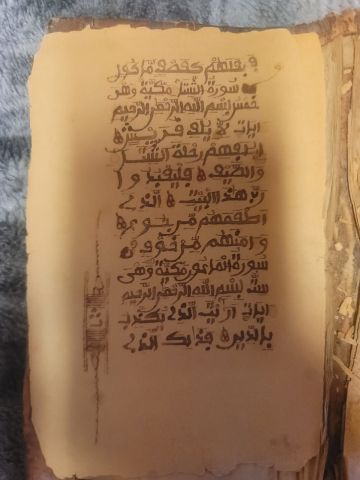 فجعلهم كعصف ماكول
سورة الشتاء مكية وهى
خمس بسم الله الرحمن الرحيم
ايات لايلف قريش
الفهم رحلة الشتاء
والصيف فليعبدوا
رب هذا البيت الذى
اطعمهم من جوع
وامنهم من خوف
سورة الماعون مكية وهى
ست بسم الله الرحمن الرحيم
ايات اريت الذى يكذب
بالدين فذلك الذى